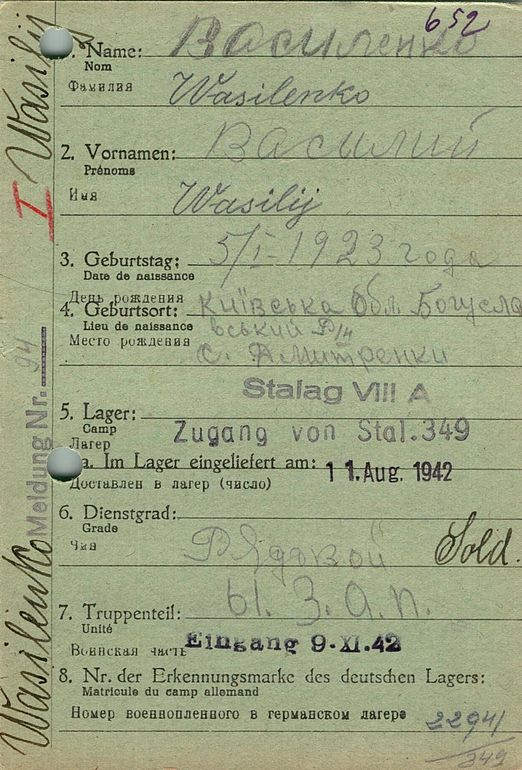 652
Name: Василенко
Nom
Фамилия Wasilenko
2. Vornamen: Василий
Prénoms
Имя Wasilij
3. Geburtstag: 5/I-1923 года
Date de naissance
День рождения
4. Geburtsort: Київська Обл. Богусла
Lieu de naissance вський Р/н
Место рождения с. Дмитренки
Stalag VIII A
5. Lager:
Camp Zugang von Stal. 349
Лагер
a. Im Lager eingeliefert am: 11. Aug. 1942
Доставлен в лагер (число)
6. Dienstgrad:
Grade
Чин Рядовой Sold.
7. Truppenteil: 61. З. а. п.
Unité
Воинская часть Eingang 9.XI.42
8. Nr. der Erkennungsmarke des deutschen Lagers:
Matricule du camp allemand
Номер военнопленного в германском лагере 22941
349
Wasilenko
Meldung Nr. 94
I Wasilij